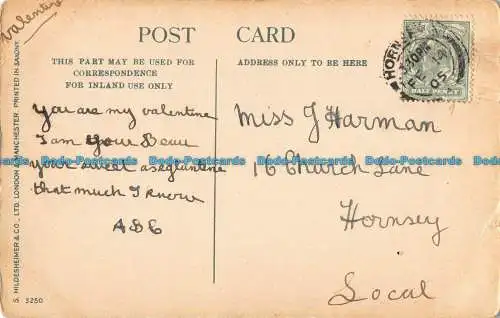 Valentine
POST CARD
THIS PART MAY BE USED FOR
CORRESPONDENCE
FOR INLAND USE ONLY
ADDRESS ONLY TO BE HERE
You are my valentine
I am your Beau
your sweet as eglantine
that much I know
ABC
Miss J Harman
16 Church Lane
Hornsey
Local
HALF PENNY
S. HILDESHEIMER & CO., LTD. LONDON & MANCHESTER. PRINTED IN SAXONY
S. 5250
Dodo-Postcards Dodo-Postcards Dodo-Postcards Dodo-Postcards